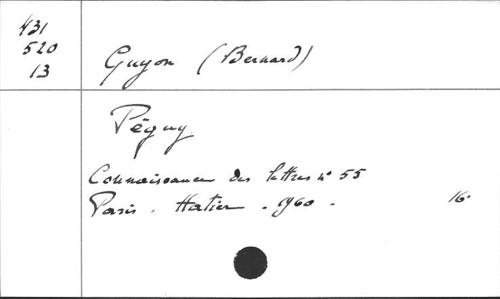 431
520
13
Guyon (Bernard)
Péguy.
Connaissance des lettres n° 55
Paris. Hatier. 1960. 16°